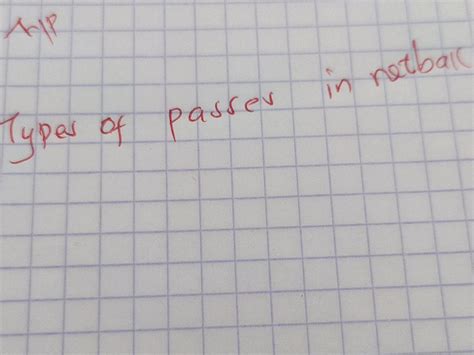 Types of passes in netball